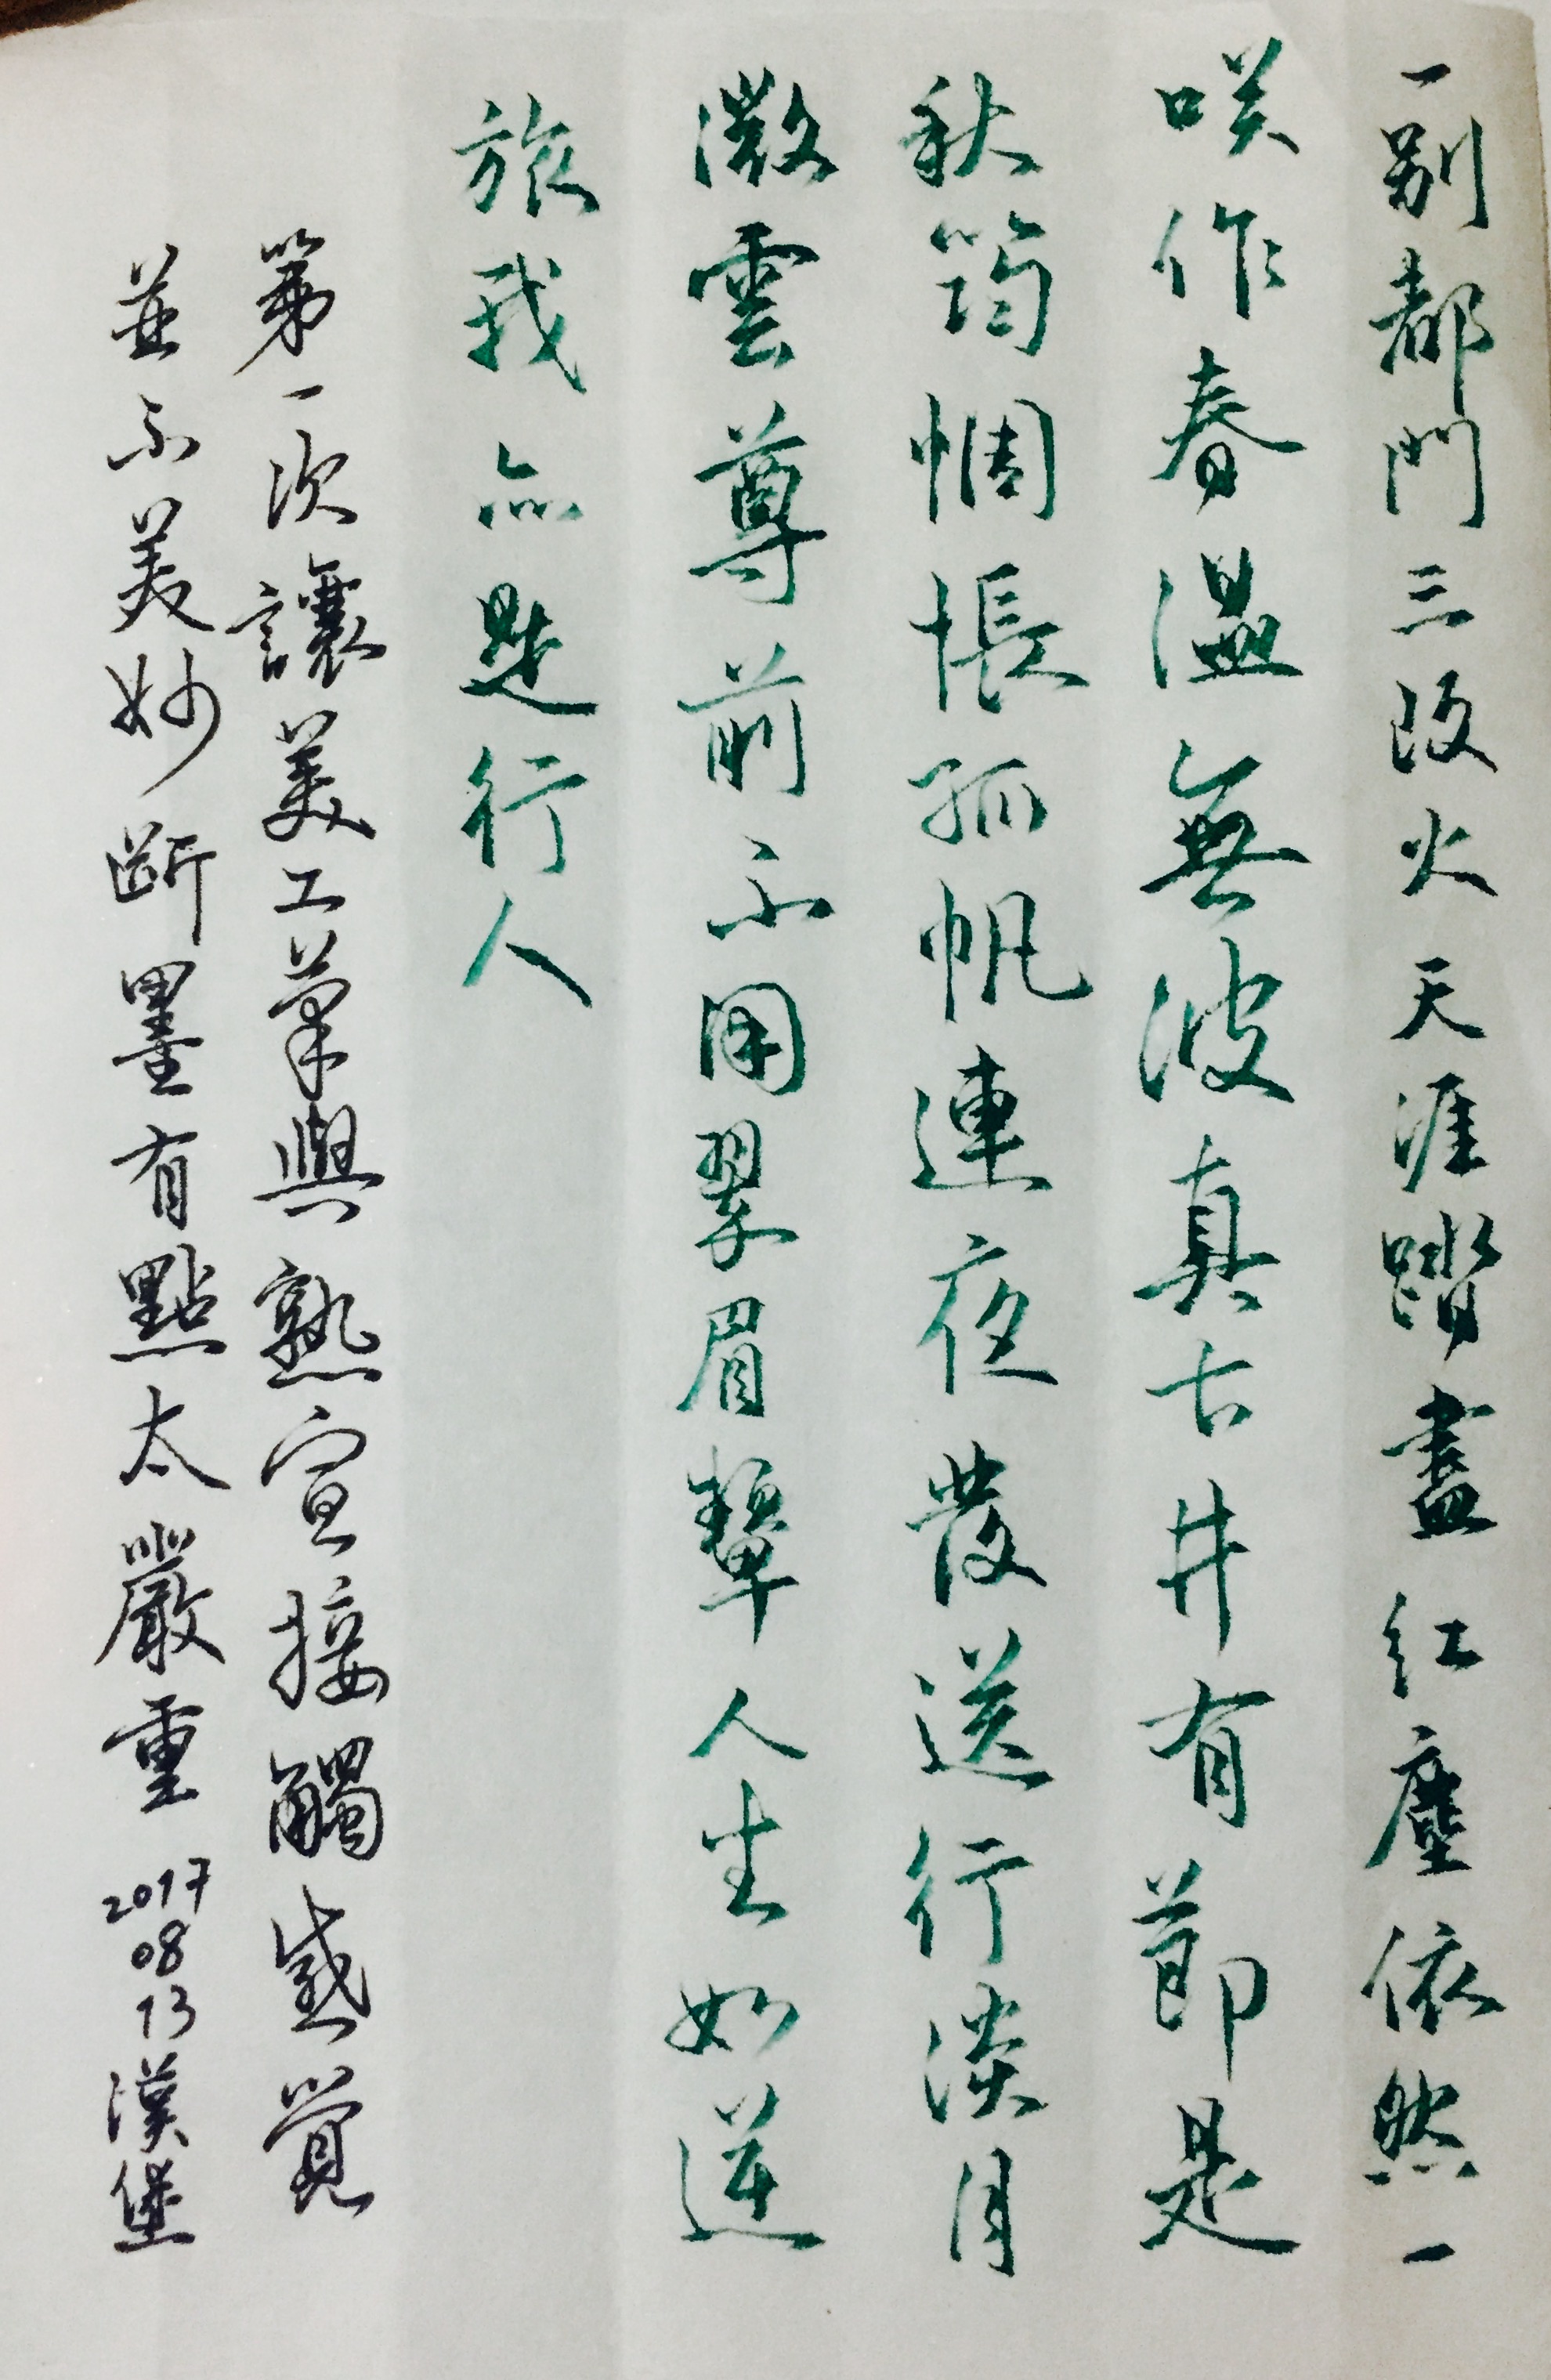 一別都門三改火天涯踏盡紅塵依然一
咲作春温無波真古井有節是
秋筠惆悵孤帆連夜發送行淡月
微雲尊前不用翠眉顰人生如逆
旅我亦是行人
第一次讓美工筆與熟宣接觸感覺
並不美妙斷墨有點太嚴重 2017 08 13 漢堡